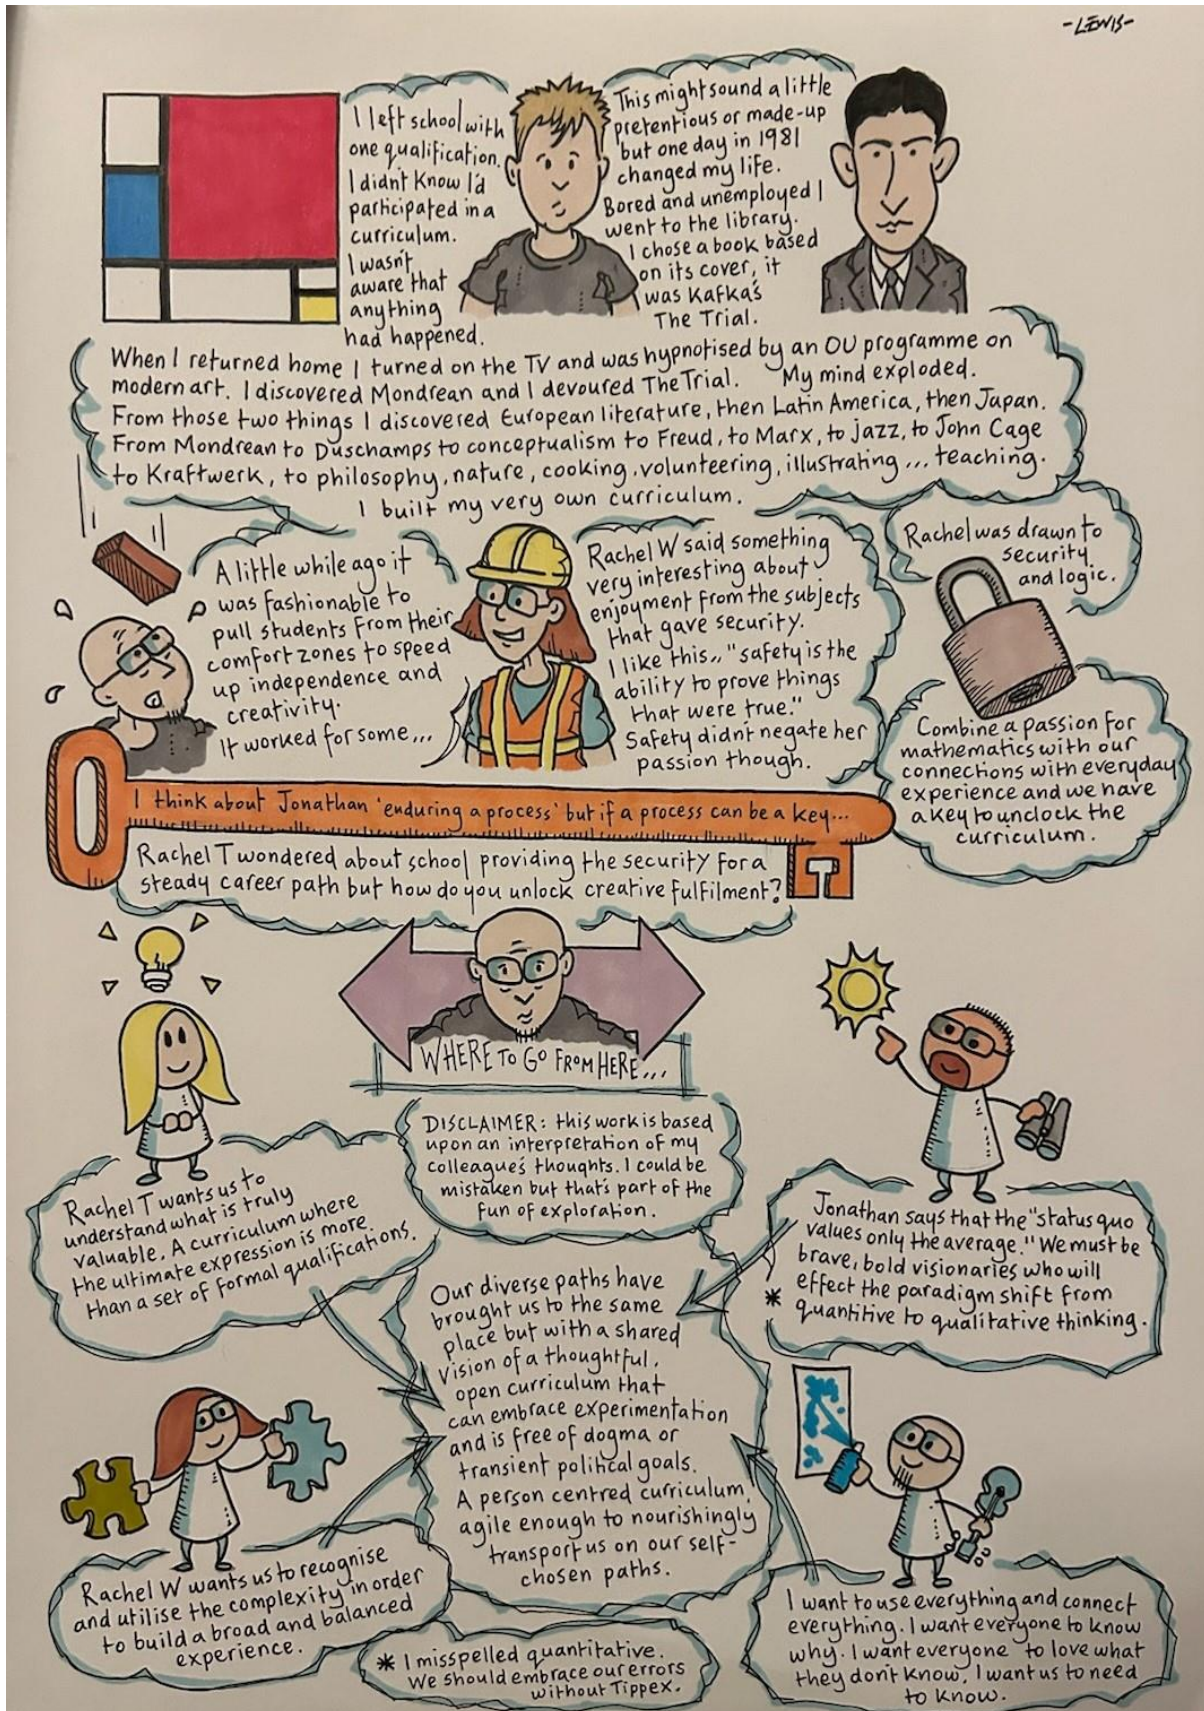 -LEWIS-
I left school with
one qualification.
I didn't know I'd
participated in a
curriculum.
I wasn't
aware that
anything
had happened.
This might sound a little
pretentious or made-up
but one day in 1981
changed my life.
Bored and unemployed I
went to the library.
I chose a book based
on its cover, it
was Kafka's
The Trial.
When I returned home I turned on the TV and was hypnotised by an OU programme on
modern art. I discovered Mondrean and I devoured The Trial. My mind exploded.
From those two things I discovered European literature, then Latin America, then Japan.
From Mondrean to Duschamps to conceptualism to Freud, to Marx, to jazz, to John Cage
to Kraftwerk, to philosophy, nature, cooking, volunteering, illustrating... teaching.
I built my very own curriculum.
A little while ago it
was fashionable to
pull students from their
comfort zones to speed
up independence and
creativity.
It worked for some...
Rachel W said something
very interesting about
enjoyment from the subjects
that gave security.
I like this.. "safety is the
ability to prove things
that were true."
Safety didnt negate her
passion though.
Rachel was drawn to
security
and logic.
Combine a passion for
mathematics with our
connections with everyday
experience and we have
a key to unclock the
curriculum.
I think about Jonathan 'enduring a process' but if a process can be a key...
Rachel T wondered about school providing the security for a
steady career path but how do you unlock creative fulfilment?
WHERE TO GO FROM HERE...
DISCLAIMER: this work is based
upon an interpretation of my
colleague's thoughts. I could be
mistaken but that's part of the
fun of exploration.
Rachel T wants us to
understand what is truly
valuable. A curriculum where
the ultimate expression is more
than a set of formal qualifications.
Jonathan says that the "status quo
values only the average." We must be
brave, bold visionaries who will
effect the paradigm shift from
* quantitive to qualitative thinking.
Our diverse paths have
brought us to the same
place but with a shared
vision of a thoughtful,
open curriculum that
can embrace experimentation
and is free of dogma or
transient political goals.
A person centred curriculum,
agile enough to nourishingly
transport us on our self-
chosen paths.
Rachel W wants us to recognise
and utilise the complexity in order
to build a broad and balanced
experience.
* I misspelled quantitative.
We should embrace our errors
without Tippex.
I want to use everything and connect
everything. I want everyone to know
why. I want everyone to love what
they don't know. I want us to need
to know.